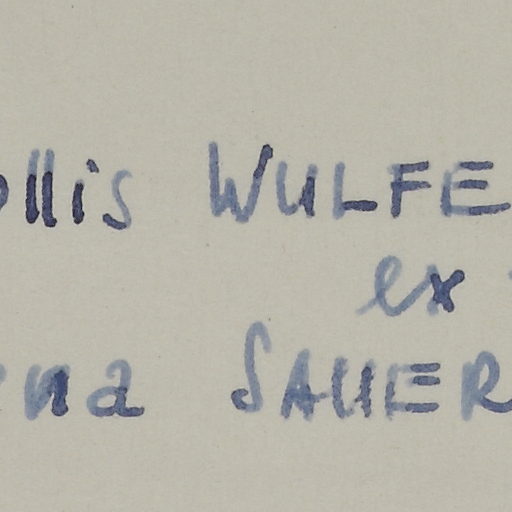 ollis WULFE
ex
na SAUER